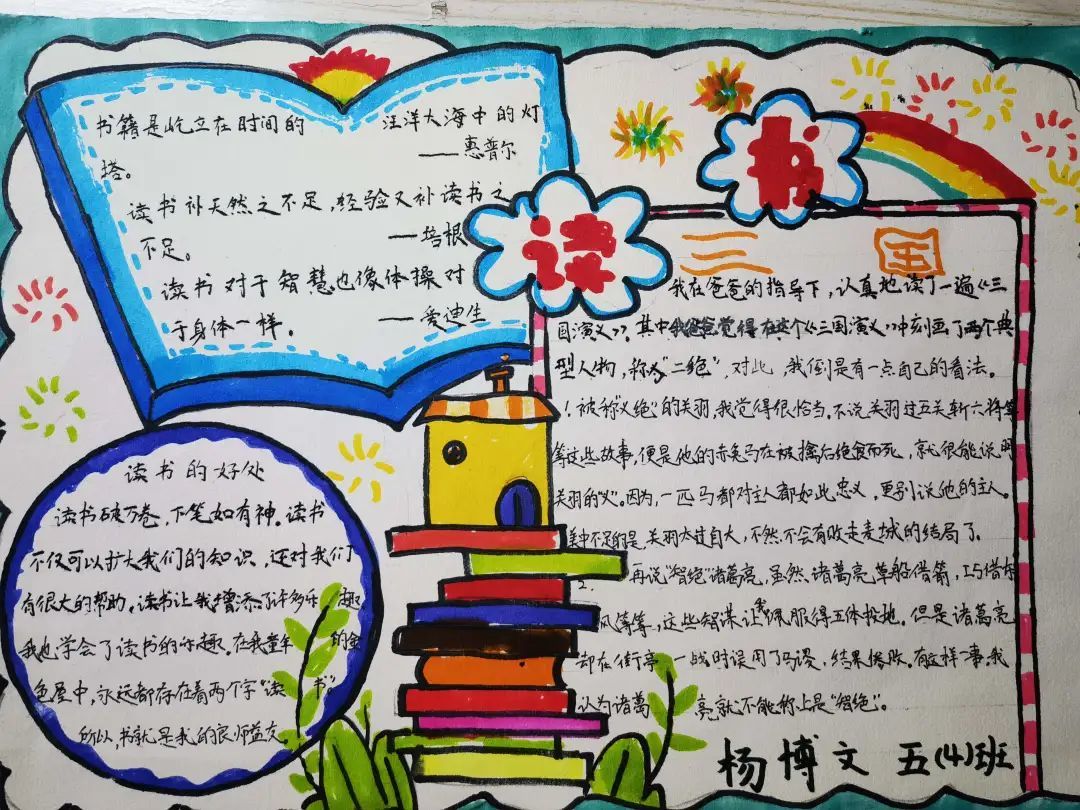 书籍是屹立在时间的 汪洋大海中的灯
——惠普尔
塔。
读书补天然之不足，经验又补读书之
不足。 —培根
读书对于智慧也像体操对
于身体一样。 ——爱迪生
读书
三国
我在爸爸的指导下，认真地读了一遍《三
国演义》，其中我爸爸觉得在这个《三国演义》中刻画了两个典
型人物，称为“二绝”，对此，我倒是有一点自己的看法。
1.被称“义绝”的关羽，我觉得很恰当，不说关羽过五关斩六将等
等这些故事，便是他的赤兔马在被擒后绝食而死，就很能说明
关羽的“义”。因为，一匹马都对主人都如此忠义，更别说他的主人。
美中不足的是，关羽太过自大，不然不会有败走麦城的结局了。
2. 再说“智绝”诸葛亮，虽然诸葛亮草船借箭，巧借东
风等等，这些智谋让我佩服得五体投地。但是诸葛亮
却在街亭一战时误用了马谡，结果惨败。有这样一事，我
认为诸葛亮就不能称上是“智绝”。
读书的好处
读书破万卷，下笔如有神。读书
不仅可以扩大我们的知识，还对我们
有很大的帮助。读书让我增添了许多乐趣
我也学会了读书的乐趣。在我童年的金
色屋中，永远都存在着两个字“读书”。
所以，书就是我的良师益友。
杨博文 五(4)班